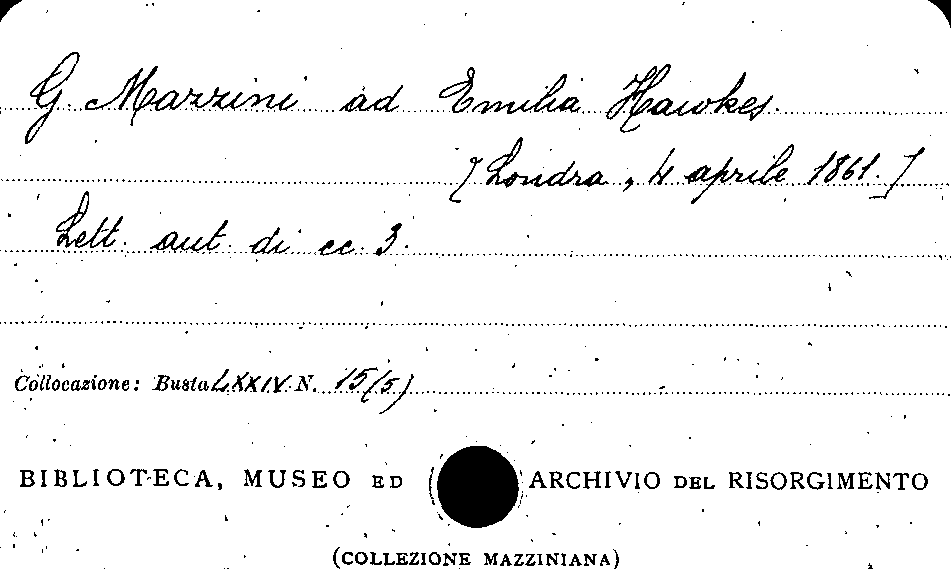 G. Mazzini ad Emilia Hawkes.
[Londra, 4 aprile 1861.]
Lett. aut. di cc. 3.
Collocazione: Busta LXXIV N. 15(5)
BIBLIOTECA, MUSEO ED ARCHIVIO DEL RISORGIMENTO
(COLLEZIONE MAZZINIANA)